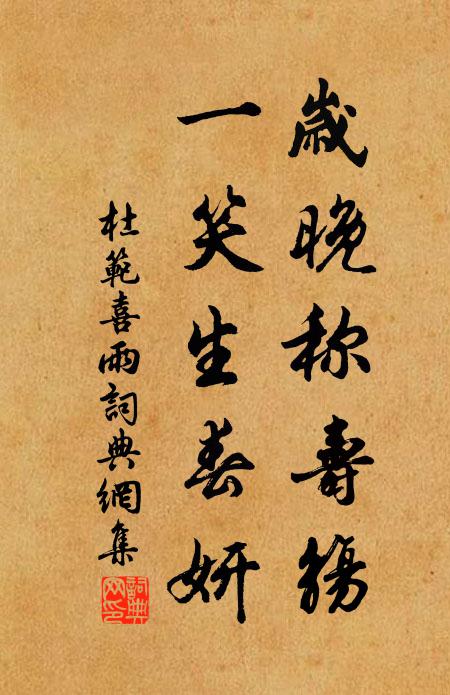 歲晚称壽觴
一笑生春妍
杜範喜雨詞典網集
詞典網印